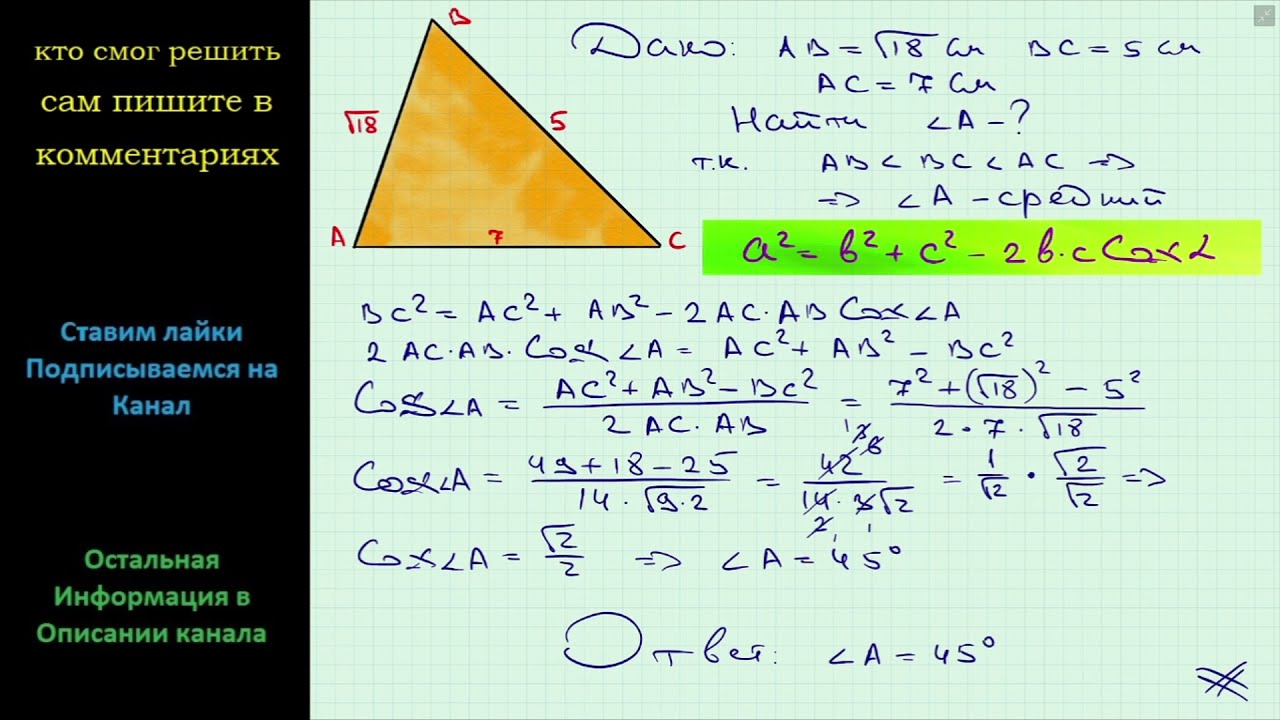 кто смог решить
сам пишите в
комментариях
Ставим лайки
Подписываемся на
Канал
Остальная
Информация в
Описании канала
B
√18
5
A
7
C
Дано: AB = √18 см BC = 5 см
AC = 7 см
Найти ∠A - ?
т.к. AB < BC < AC =>
=> ∠A - средний
a² = b² + c² - 2b·c Cos α
BC² = AC² + AB² - 2 AC·AB Cos∠A
2 AC·AB·Cos ∠A = AC² + AB² - BC²
Cos∠A = (AC² + AB² - BC²)/(2 AC·AB) = (7² + (√18)² - 5²)/(2·7·√18)
Cos∠A = (49 + 18 - 25)/(14·√9·2) = 42/(14·3√2) = 1/√2 · √2/√2 =>
Cos∠A = √2/2 => ∠A = 45°
Ответ: ∠A = 45°